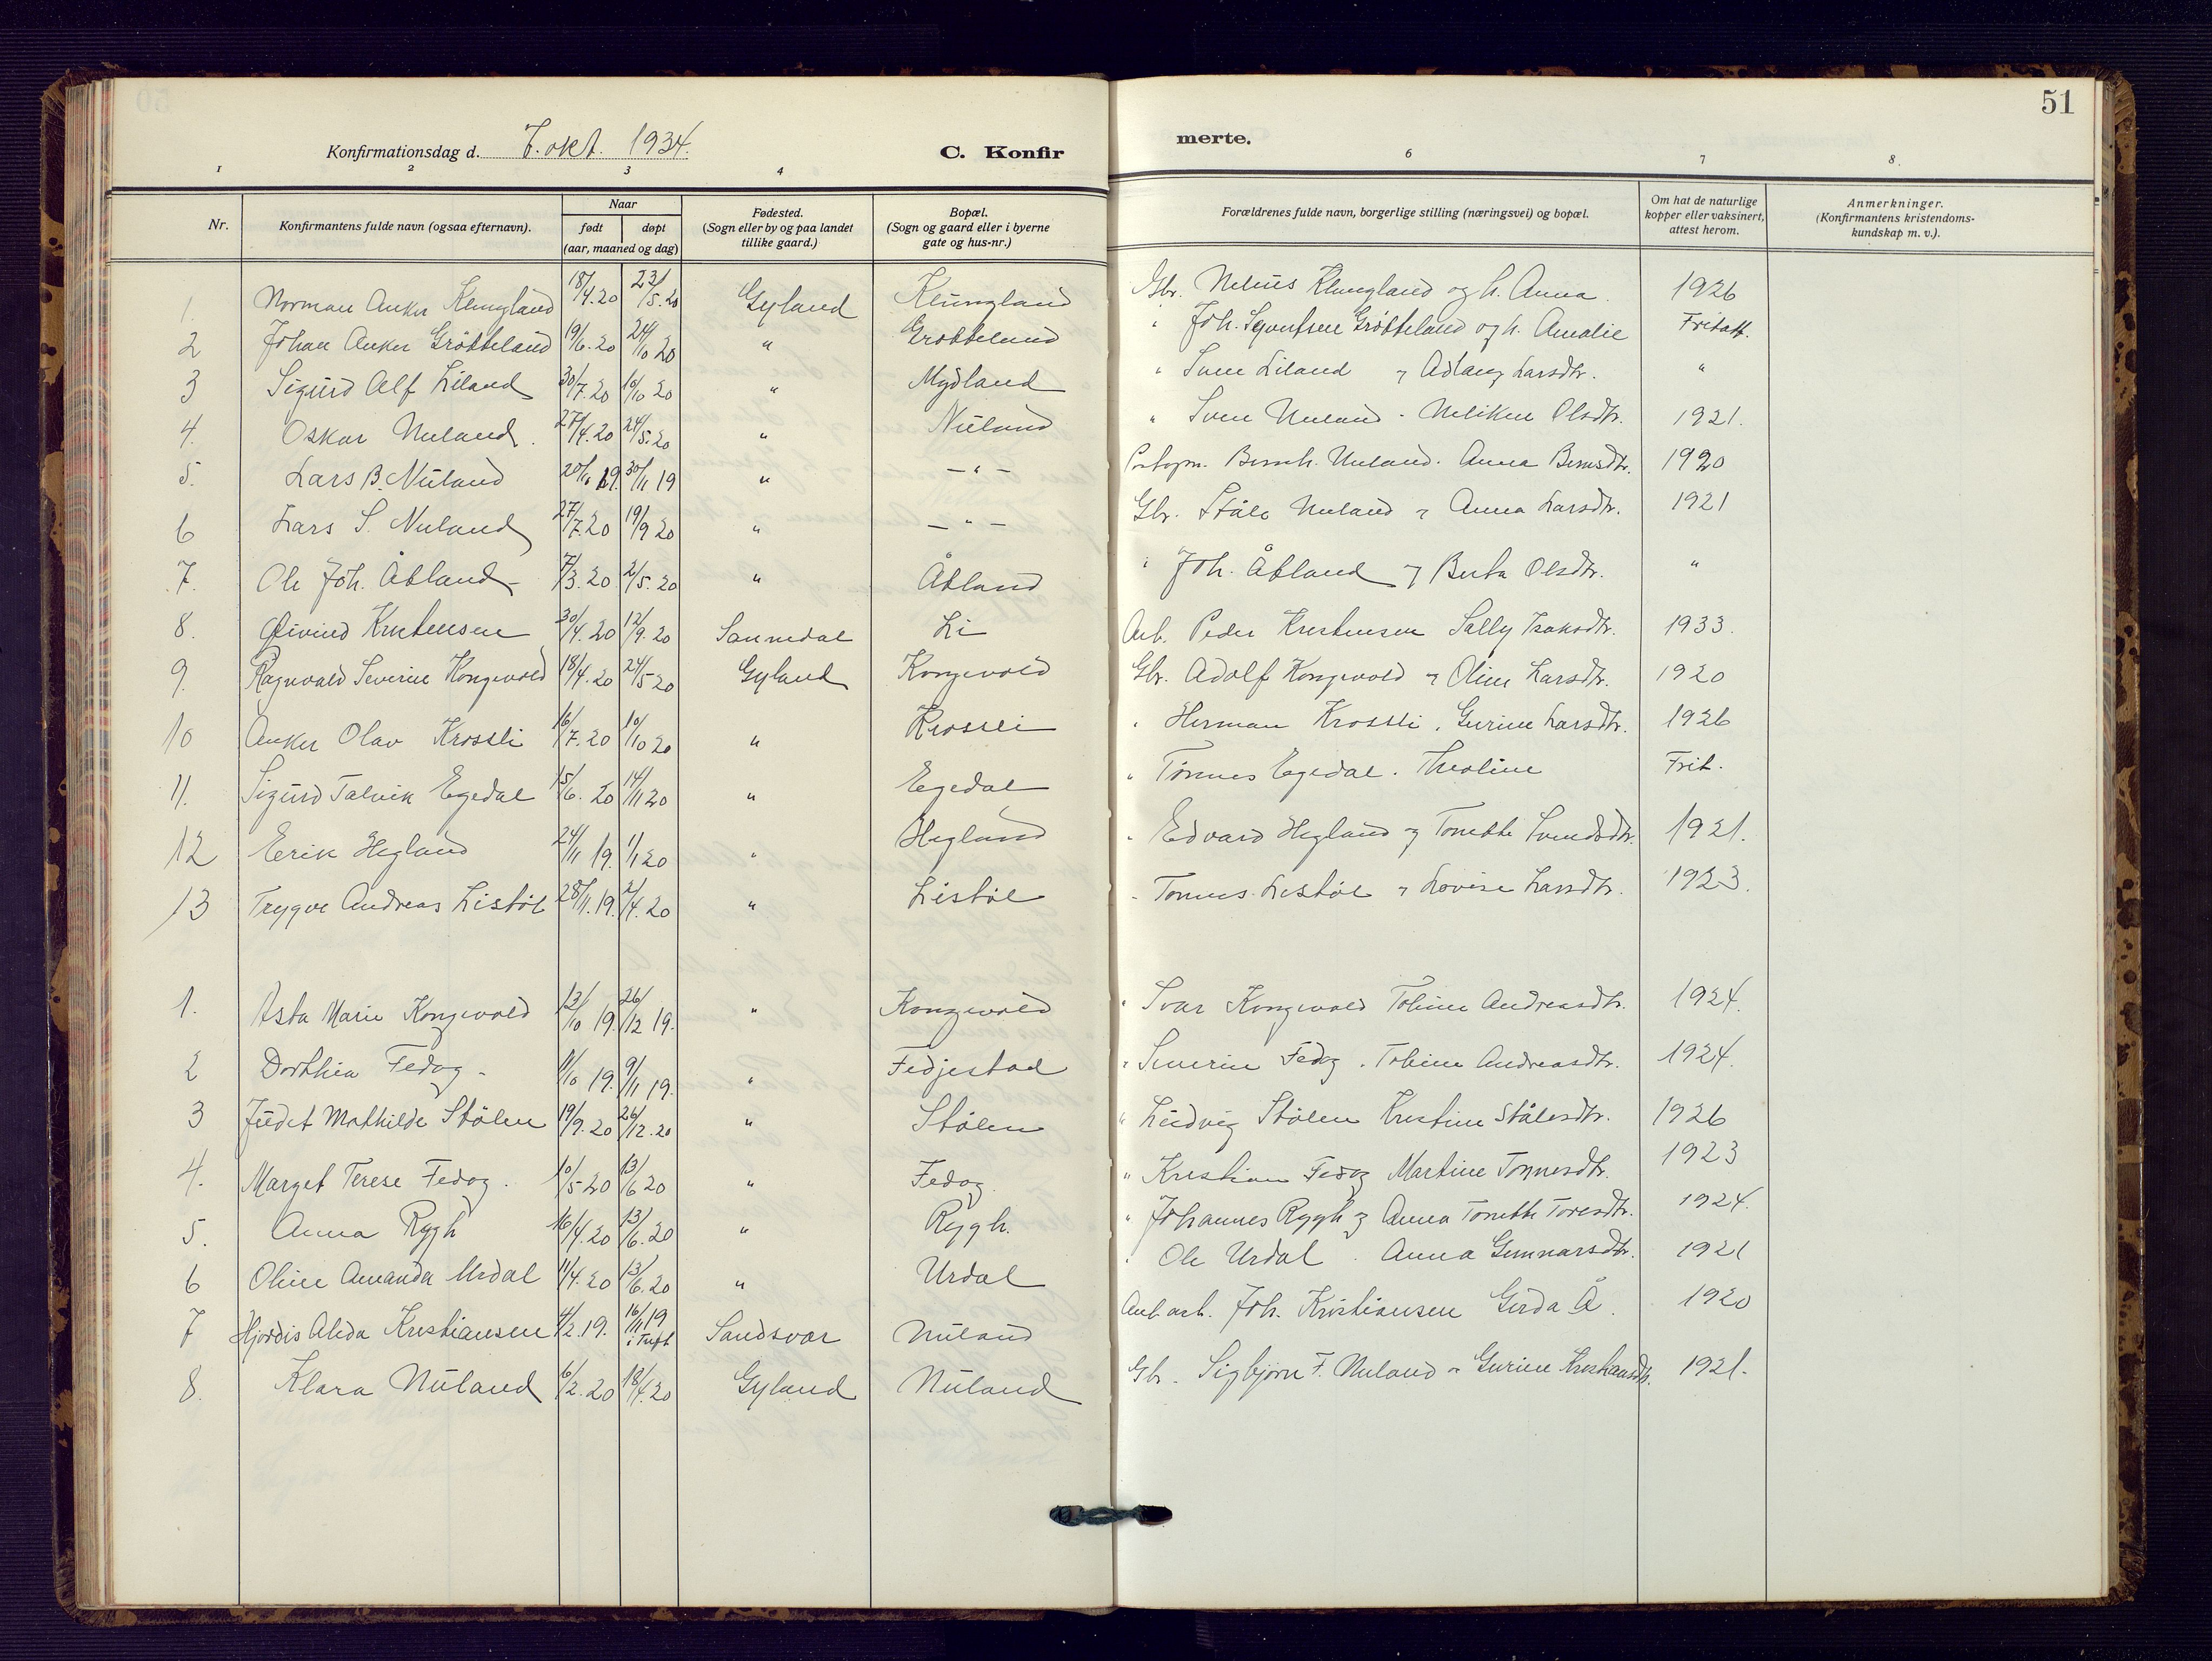 51
Konfirmationsdag d. 7. okt. 1934.
C. Konfir merte.
1 2 3 4 6 7 8.
Nr.
Konfirmantens fulde navn (ogsaa efternavn).
Naar
født døpt
(aar, maaned og dag)
Fødested.
(Sogn eller by og paa landet
tillike gaard.)
Bopæl.
(Sogn og gaard eller i byerne
gate og hus-nr.)
Forældrenes fulde navn, borgerlige stilling (næringsvei) og bopæl.
Om hat de naturlige
kopper eller vaksinert,
attest herom.
Anmerkninger.
(Konfirmantens kristendoms-
kundskap m. v.).
1. Norman Anker Klungland 18/4.20 23/5.20 Gyland Klungland Gbr. Nelius Klungland og h. Anna. 1926
2 Johan Anker Grötteland 19/6.20 24/10 20 " Grötteland " Joh. Grötteland og h. Amalie Fritatt.
3 Sigurd Alf Liland 30/7.20 10/10 20 " Mydland " Sven Liland Larsdtr. "
4. Oskar Nuland. 27/4.20 24/5.20 " Nuland " Sven Nuland - Olsdtr. 1921.
5. Lars B. Nuland 20/11 19. 30/11 19 " - " - Nuland. Anna 1920
6 Lars S. Nuland 27/7.20 19/9 20 " - " - Gbr. Ståle Nuland Anna Larsdtr. 1921
7. Ole Joh. Åtland 7/3.20 2/5.20 " Åtland " Joh. Åtland Berta Olsdtr. "
8. Øivind Kristensen 30/4.20 12/9.20 Sannidal Li Arb. Peder Kristensen Sally Isaksdtr. 1933.
9. Ragnvald Severin Kongevold 18/4.20 24/5 20 Gyland Kongevold Gbr. Adolf Kongevold Oline Larsdtr. 1920
10 Anker Olav Krossli 16/7.20 10/10 20 " Krossli " Herman Krossli. Gurine Larsdtr. 1926
11. Sigurd Talvik Egedal 15/6.20 14/11 20 " Egedal " Tönnes Egedal. Theoline Frit.
12 Erik Hegland 24/11 19. 1/1 20 " Hegland " Edvard Hegland og Tonette 1921.
13 Trygve Andreas Listöl 28/11.19. 2/4.20 " Listöl " Tönnes Listöl Lovise Larsdtr. 1923.
1. Asta Marie Kongevold 12/10 19. 26/12 19. " Kongevold " Ivar Kongevold Tobine Andreasdtr. 1924.
2 Dorthea Fedog - 11/10 19. 9/11 19. " Fedjestad " Severin Fedog. Tobine Andreasdtr. 1924.
3 Judet Mathilde Stölen 19/9.20 26/12.20 " Stölen " Ludvig Stölen Kristine Stålesdtr. 1926
4. Marget Terese Fedog. 10/5 20 13/6 20 " Fedog " Kristian Fedog Martine Tonnesdtr. 1923
5. Anna Rygh 16/4.20 13/6.20 " Rygh. " Johannes Rygh og Anna Tonette Toresdtr. 1924.
6 Oline Amanda Urdal 11/4.20 13/6.20 " Urdal " Ole Urdal. Anna Gunnarsdtr. 1921
7 Hjordis Alida Kristiansen 4/2.19. 16/11 19 i Tuft Sandsvær Nuland Anl. arb. Joh. Kristiansen Gerda Å. 1920
8. Klara Nuland 6/2.20 18/4.20 Gyland Nuland Gbr. Sigbjörn F. Nuland Gurine 1921.